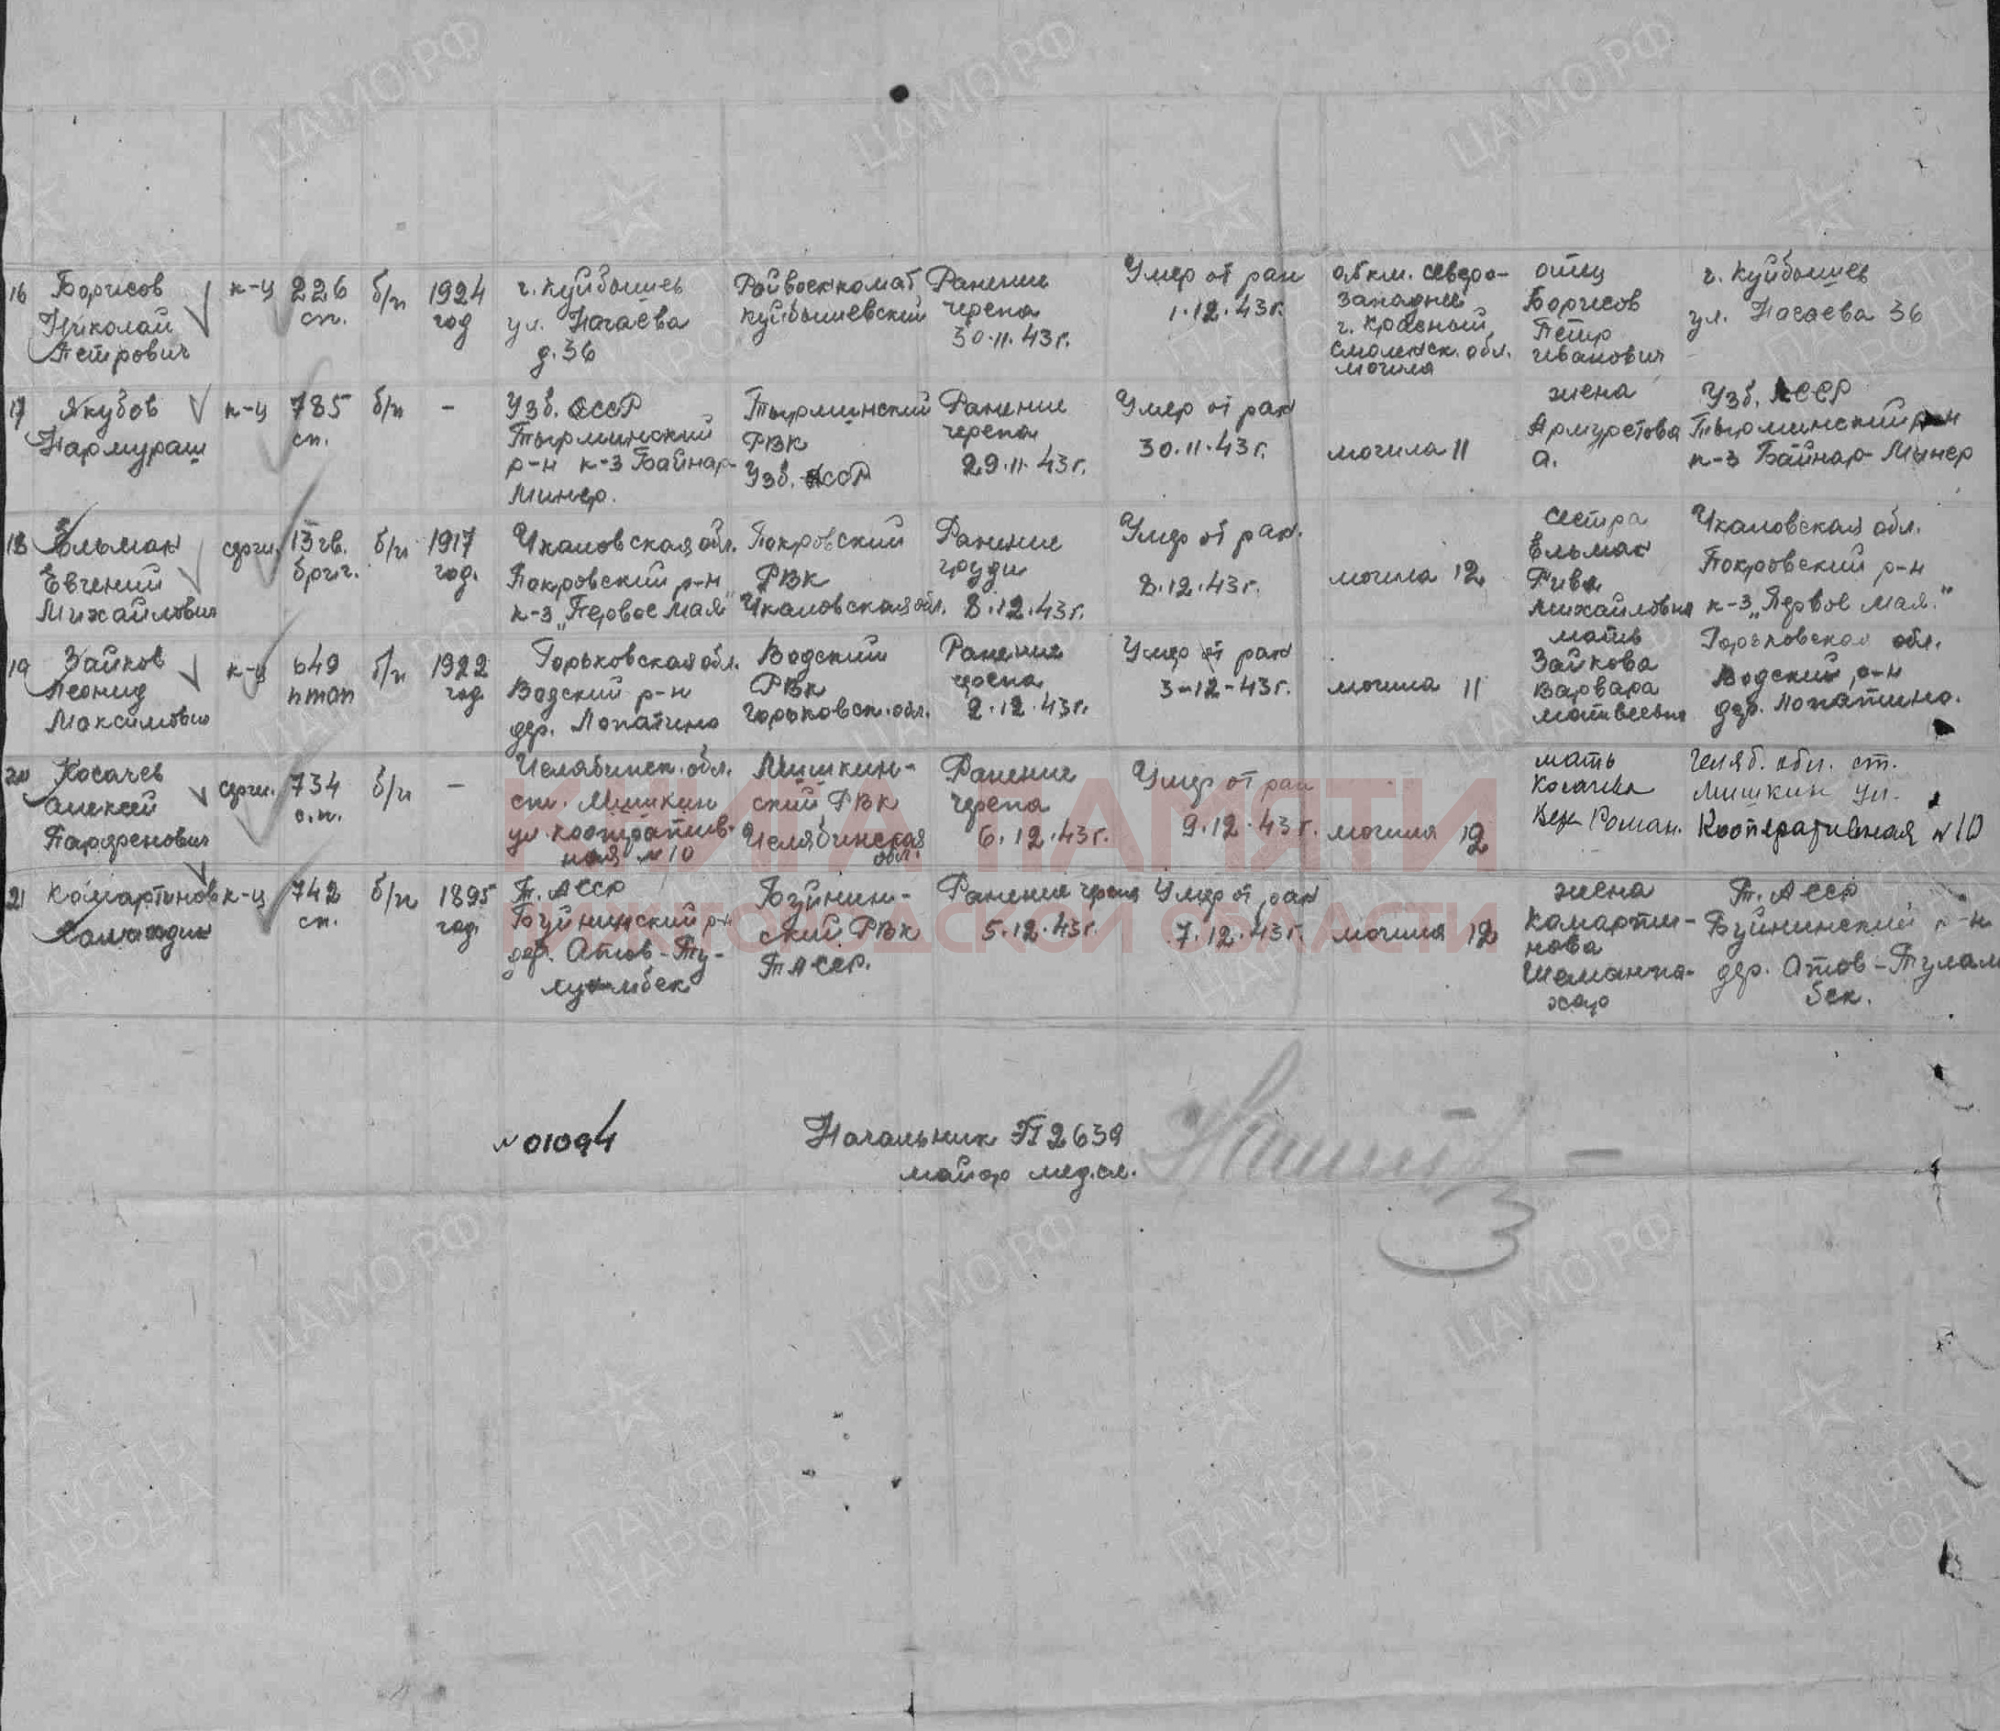 16 Борисов Николай Петрович к-ц 226 сп. б/п 1924 год г. Куйбышев ул. Нагаева д. 36 Райвоенкомат Куйбышевский Ранение черепа 30.11.43г. Умер от ран 1.12.43г. северо-западнее г. Красный, Смоленск. обл. могила отец Борисов Петр Иванович г. Куйбышев ул. 36
17 Якубов Нармураш к-ц 785 сп. б/п - Узб. ССР Тырминский р-н к-з Байнар-Минер. Тырминский РВК Узб. ССР Ранение черепа 29.11.43г. Умер от ран 30.11.43г. могила 11 жена а. Узб. ССР Тырминский р-н к-з Байнар-Минер
18 Ельман Евгений Михайлович серж. 13 гв. бриг. б/п 1917 год. Чкаловская обл. Покровский р-н к-з „Первое Мая" Покровский РВК Чкаловская обл. Ранение груди 8.12.43г. Умер от ран. 8.12.43г. могила 12 сестра Ельман Рива Михайловна Чкаловская обл. Покровский р-н к-з „Первое Мая."
19 Зайков Леонид Максимович к-ц 649 птап б/п 1922 год Горьковская обл. Вадский р-н дер. Лопатино Вадский РВК Горьковск. обл. Ранение черепа 2.12.43г. Умер от ран 3-12-43г. могила 11 мать Зайкова Варвара Матвеевна Горьковская обл. Вадский р-н дер. Лопатино.
20 Косачев Алексей Парфенович серж. 734 с.п. б/п - Челябинск. обл. ст. Мишкин ул. Кооператив-ная №10 Мишкин-ский РВК Челябинская обл. Ранение черепа 6.12.43г. Умер от ран 9.12.43г. могила 12 мать Роман. Челяб. обл. ст. Мишкин ул. Кооперативная №10
21 Комартинов к-ц 742 сп. б/п 1895 год. Т. АССР Буйнинский р-н дер. Буйнин-ский РВК ТАССР. Ранение черепа 5.12.43г. Умер от ран 7.12.43г. могила 12 жена Камарти-нова Т. АССР Буйнинский р-н дер. Атов-Тулам бек.
№01094
Начальник ПГ 2639
майор мед.сл.
КНИГА ПАМЯТИ
НИЖЕГОРОДСКОЙ ОБЛАСТИ
ЦАМО.РФ
ПАМЯТЬ НАРОДА